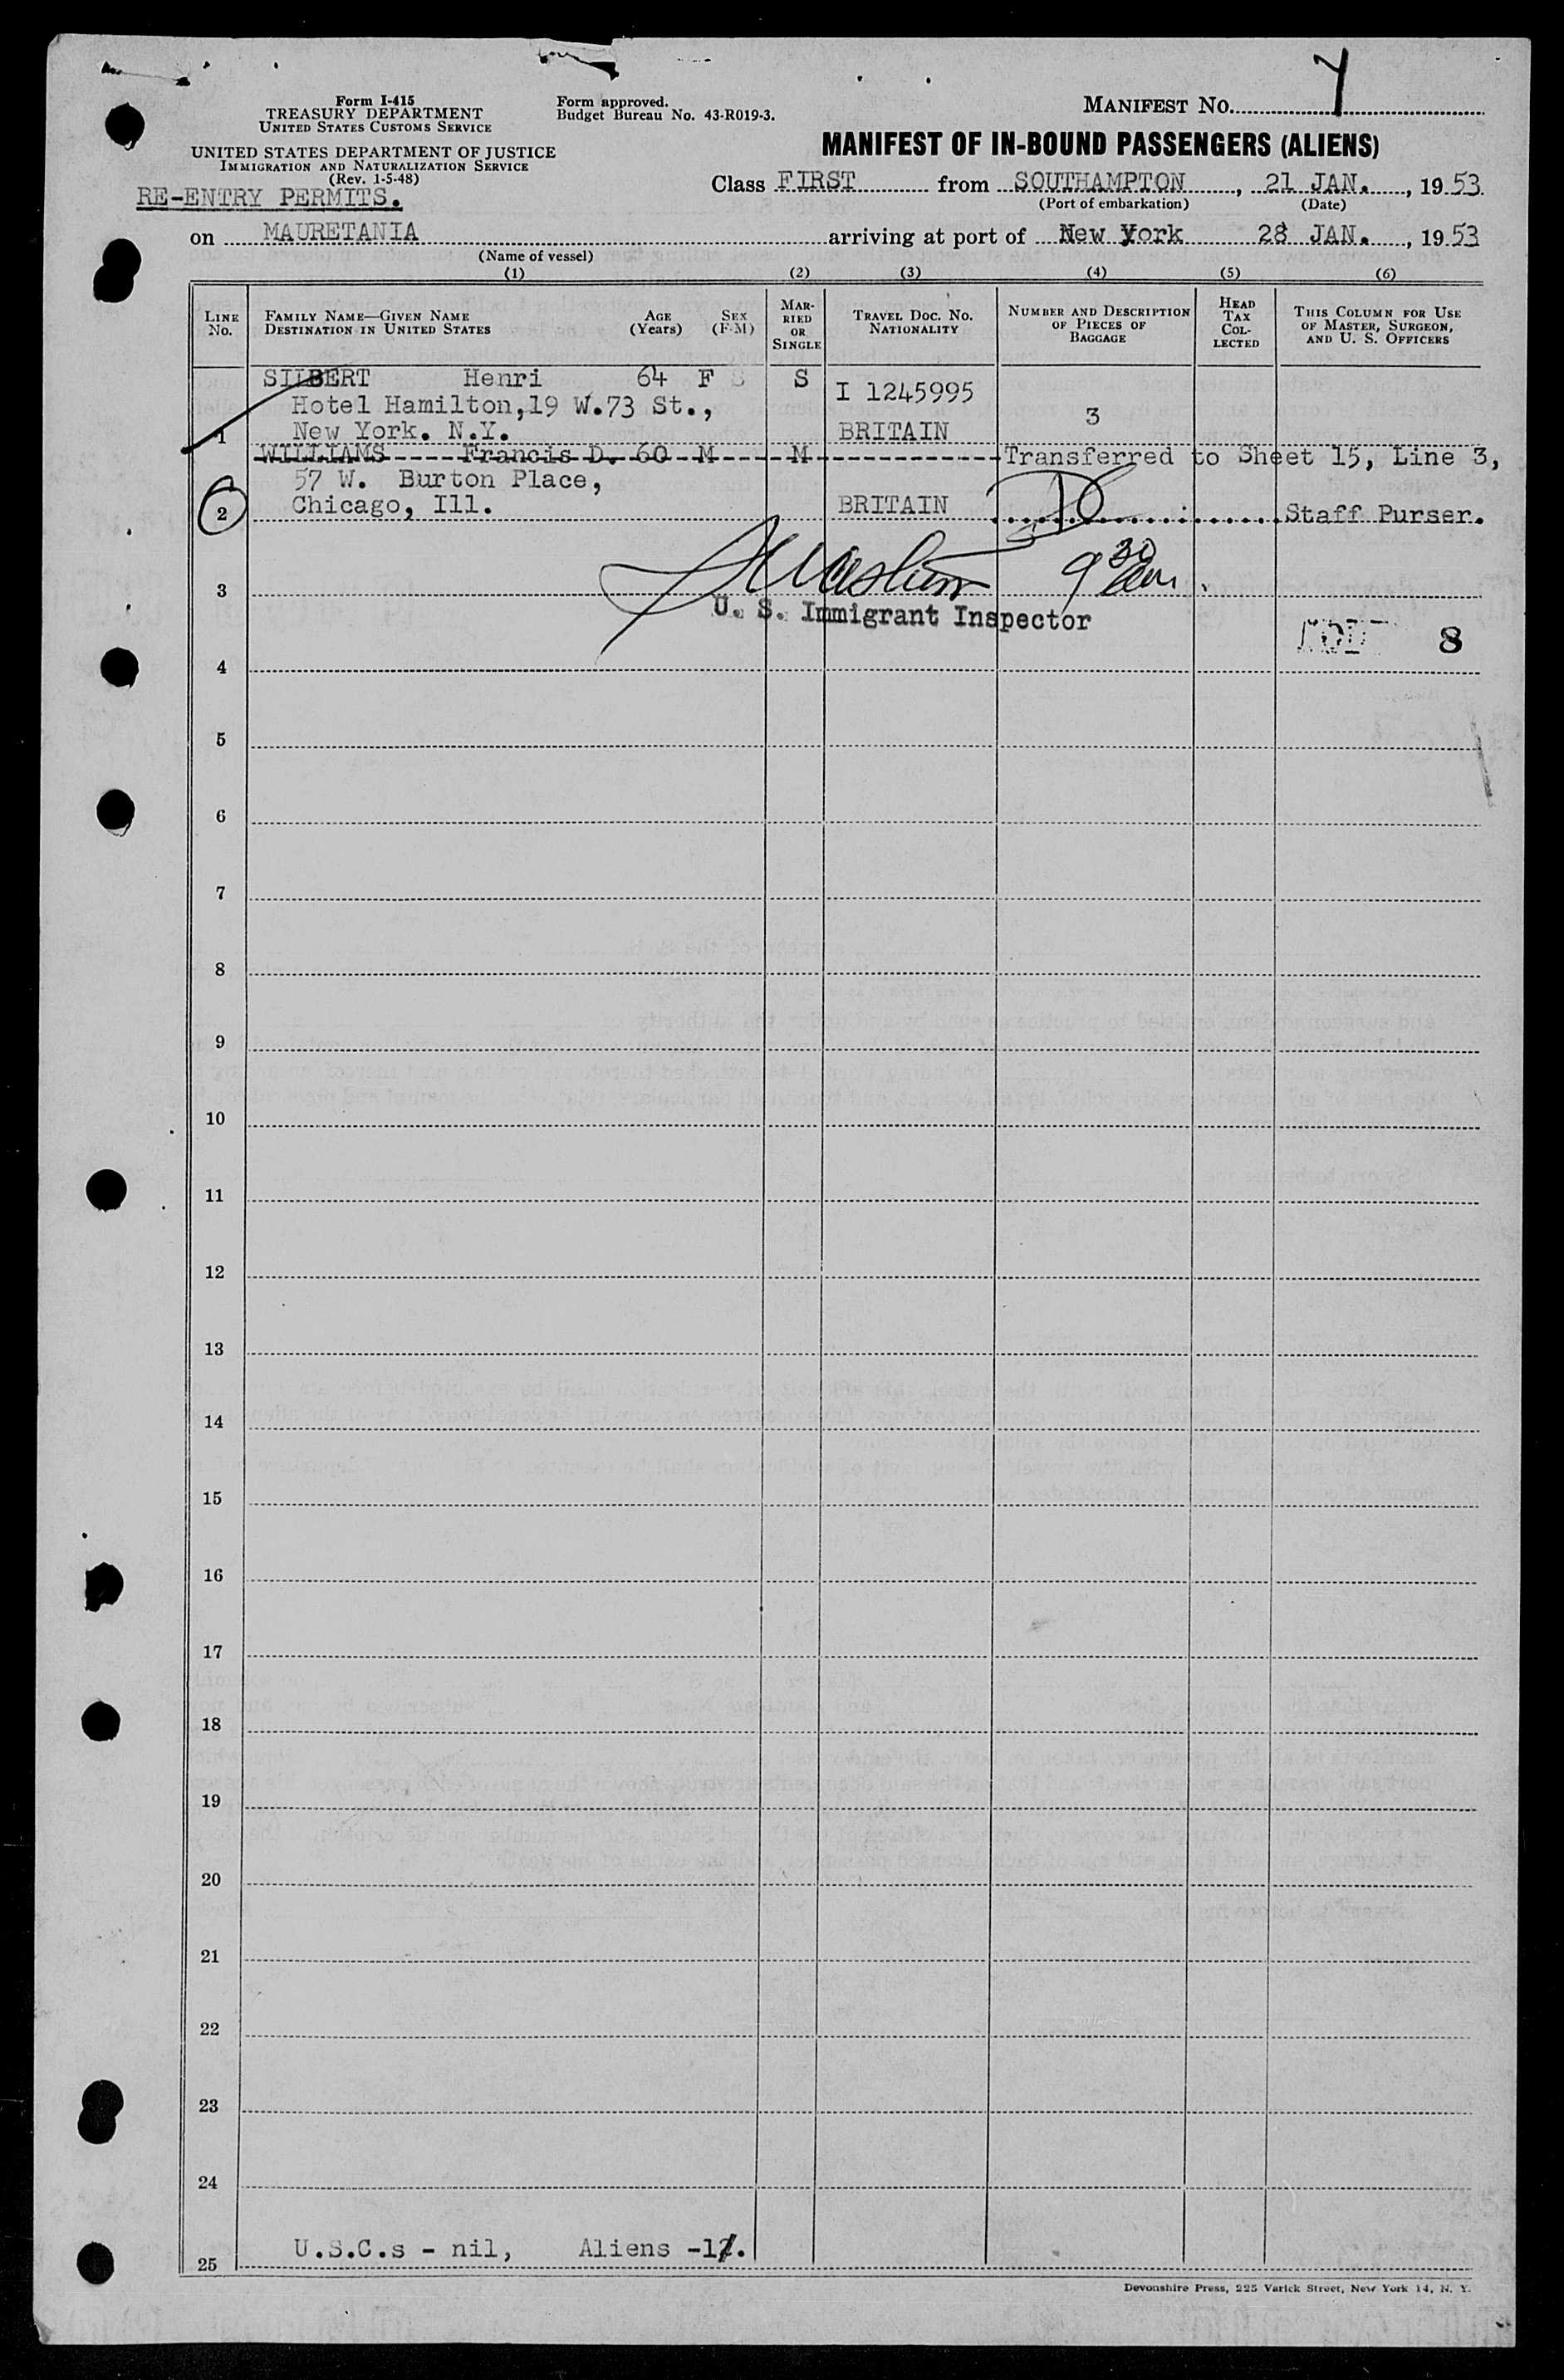 Form I-415
TREASURY DEPARTMENT
UNITED STATES CUSTOMS SERVICE
UNITED STATES DEPARTMENT OF JUSTICE
IMMIGRATION AND NATURALIZATION SERVICE
(Rev. 1-5-48)
RE-ENTRY PERMITS.
Form approved.
Budget Bureau No. 43-R019-3.
MANIFEST NO.
MANIFEST OF IN-BOUND PASSENGERS (ALIENS)
Class FIRST from SOUTHAMPTON, 21 JAN., 1953
(Port of embarkation) (Date)
on MAURETANIA arriving at port of New York 28 JAN., 1953
(Name of vessel)
(1) (2) (3) (4) (5) (6)
LINE NO. FAMILY NAME—GIVEN NAME DESTINATION IN UNITED STATES AGE (Years) SEX (F-M) MARRIED OR SINGLE TRAVEL DOC. NO. NATIONALITY NUMBER AND DESCRIPTION OF PIECES OF BAGGAGE HEAD TAX COLLECTED THIS COLUMN FOR USE OF MASTER, SURGEON, AND U. S. OFFICERS
SILBERT Henri 64 F S I 1245995
Hotel Hamilton,19 W.73 St., 3
1 New York. N.Y. BRITAIN
WILLIAMS Francis D. 60 M M Transferred to Sheet 15, Line 3,
57 W. Burton Place,
2 Chicago, Ill. BRITAIN Staff Purser.
9 30 am
3
U. S. Immigrant Inspector
8
4
5
6
7
8
9
10
11
12
13
14
15
16
17
18
19
20
21
22
23
24
U.S.C.s - nil, Aliens -1
25
Devonshire Press, 225 Varick Street, New York 14, N. Y.